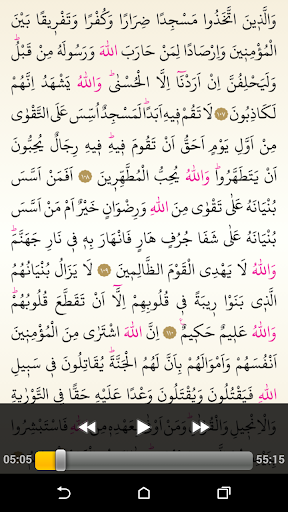 وَالَّذ۪ينَ اتَّخَذُوا مَسْجِدًا ضِرَارًا وَكُفْرًا وَتَفْر۪يقًا بَيْنَ
الْمُؤْمِن۪ينَ وَاِرْصَادًا لِمَنْ حَارَبَ اللّٰهَ وَرَسُولَهُ مِنْ قَبْلُۜ
وَلَيَحْلِفُنَّ اِنْ اَرَدْنَٓا اِلَّا الْحُسْنٰىۜ وَاللّٰهُ يَشْهَدُ اِنَّهُمْ
لَكَاذِبُونَ ﴿١٠٧﴾ لَا تَقُمْ ف۪يهِ اَبَدًاۜ لَمَسْجِدٌ اُسِّسَ عَلَى التَّقْوٰى
مِنْ اَوَّلِ يَوْمٍ اَحَقُّ اَنْ تَقُومَ ف۪يهِۜ ف۪يهِ رِجَالٌ يُحِبُّونَ
اَنْ يَتَطَهَّرُواۜ وَاللّٰهُ يُحِبُّ الْمُطَّهِّر۪ينَ ﴿١٠٨﴾ اَفَمَنْ اَسَّسَ
بُنْيَانَهُ عَلٰى تَقْوٰى مِنَ اللّٰهِ وَرِضْوَانٍ خَيْرٌ اَمْ مَنْ اَسَّسَ
بُنْيَانَهُ عَلٰى شَفَا جُرُفٍ هَارٍ فَانْهَارَ بِه۪ ف۪ي نَارِ جَهَنَّمَۜ
وَاللّٰهُ لَا يَهْدِي الْقَوْمَ الظَّالِم۪ينَ ﴿١٠٩﴾ لَا يَزَالُ بُنْيَانُهُمُ
الَّذ۪ي بَنَوْا ر۪يبَةً ف۪ي قُلُوبِهِمْ اِلَّٓا اَنْ تَقَطَّعَ قُلُوبُهُمْۜ
وَاللّٰهُ عَل۪يمٌ حَك۪يمٌ۟ ﴿١١٠﴾ اِنَّ اللّٰهَ اشْتَرٰى مِنَ الْمُؤْمِن۪ينَ
اَنْفُسَهُمْ وَاَمْوَالَهُمْ بِاَنَّ لَهُمُ الْجَنَّةَۜ يُقَاتِلُونَ ف۪ي سَب۪يلِ
اللّٰهِ فَيَقْتُلُونَ وَيُقْتَلُونَ وَعْدًا عَلَيْهِ حَقًّا فِي التَّوْرٰيةِ
وَالْاِنْج۪يلِ وَالْقُرْاٰنِۜ وَمَنْ اَوْفٰى بِعَهْدِه۪ مِنَ اللّٰهِ فَاسْتَبْشِرُوا
05:05 55:15